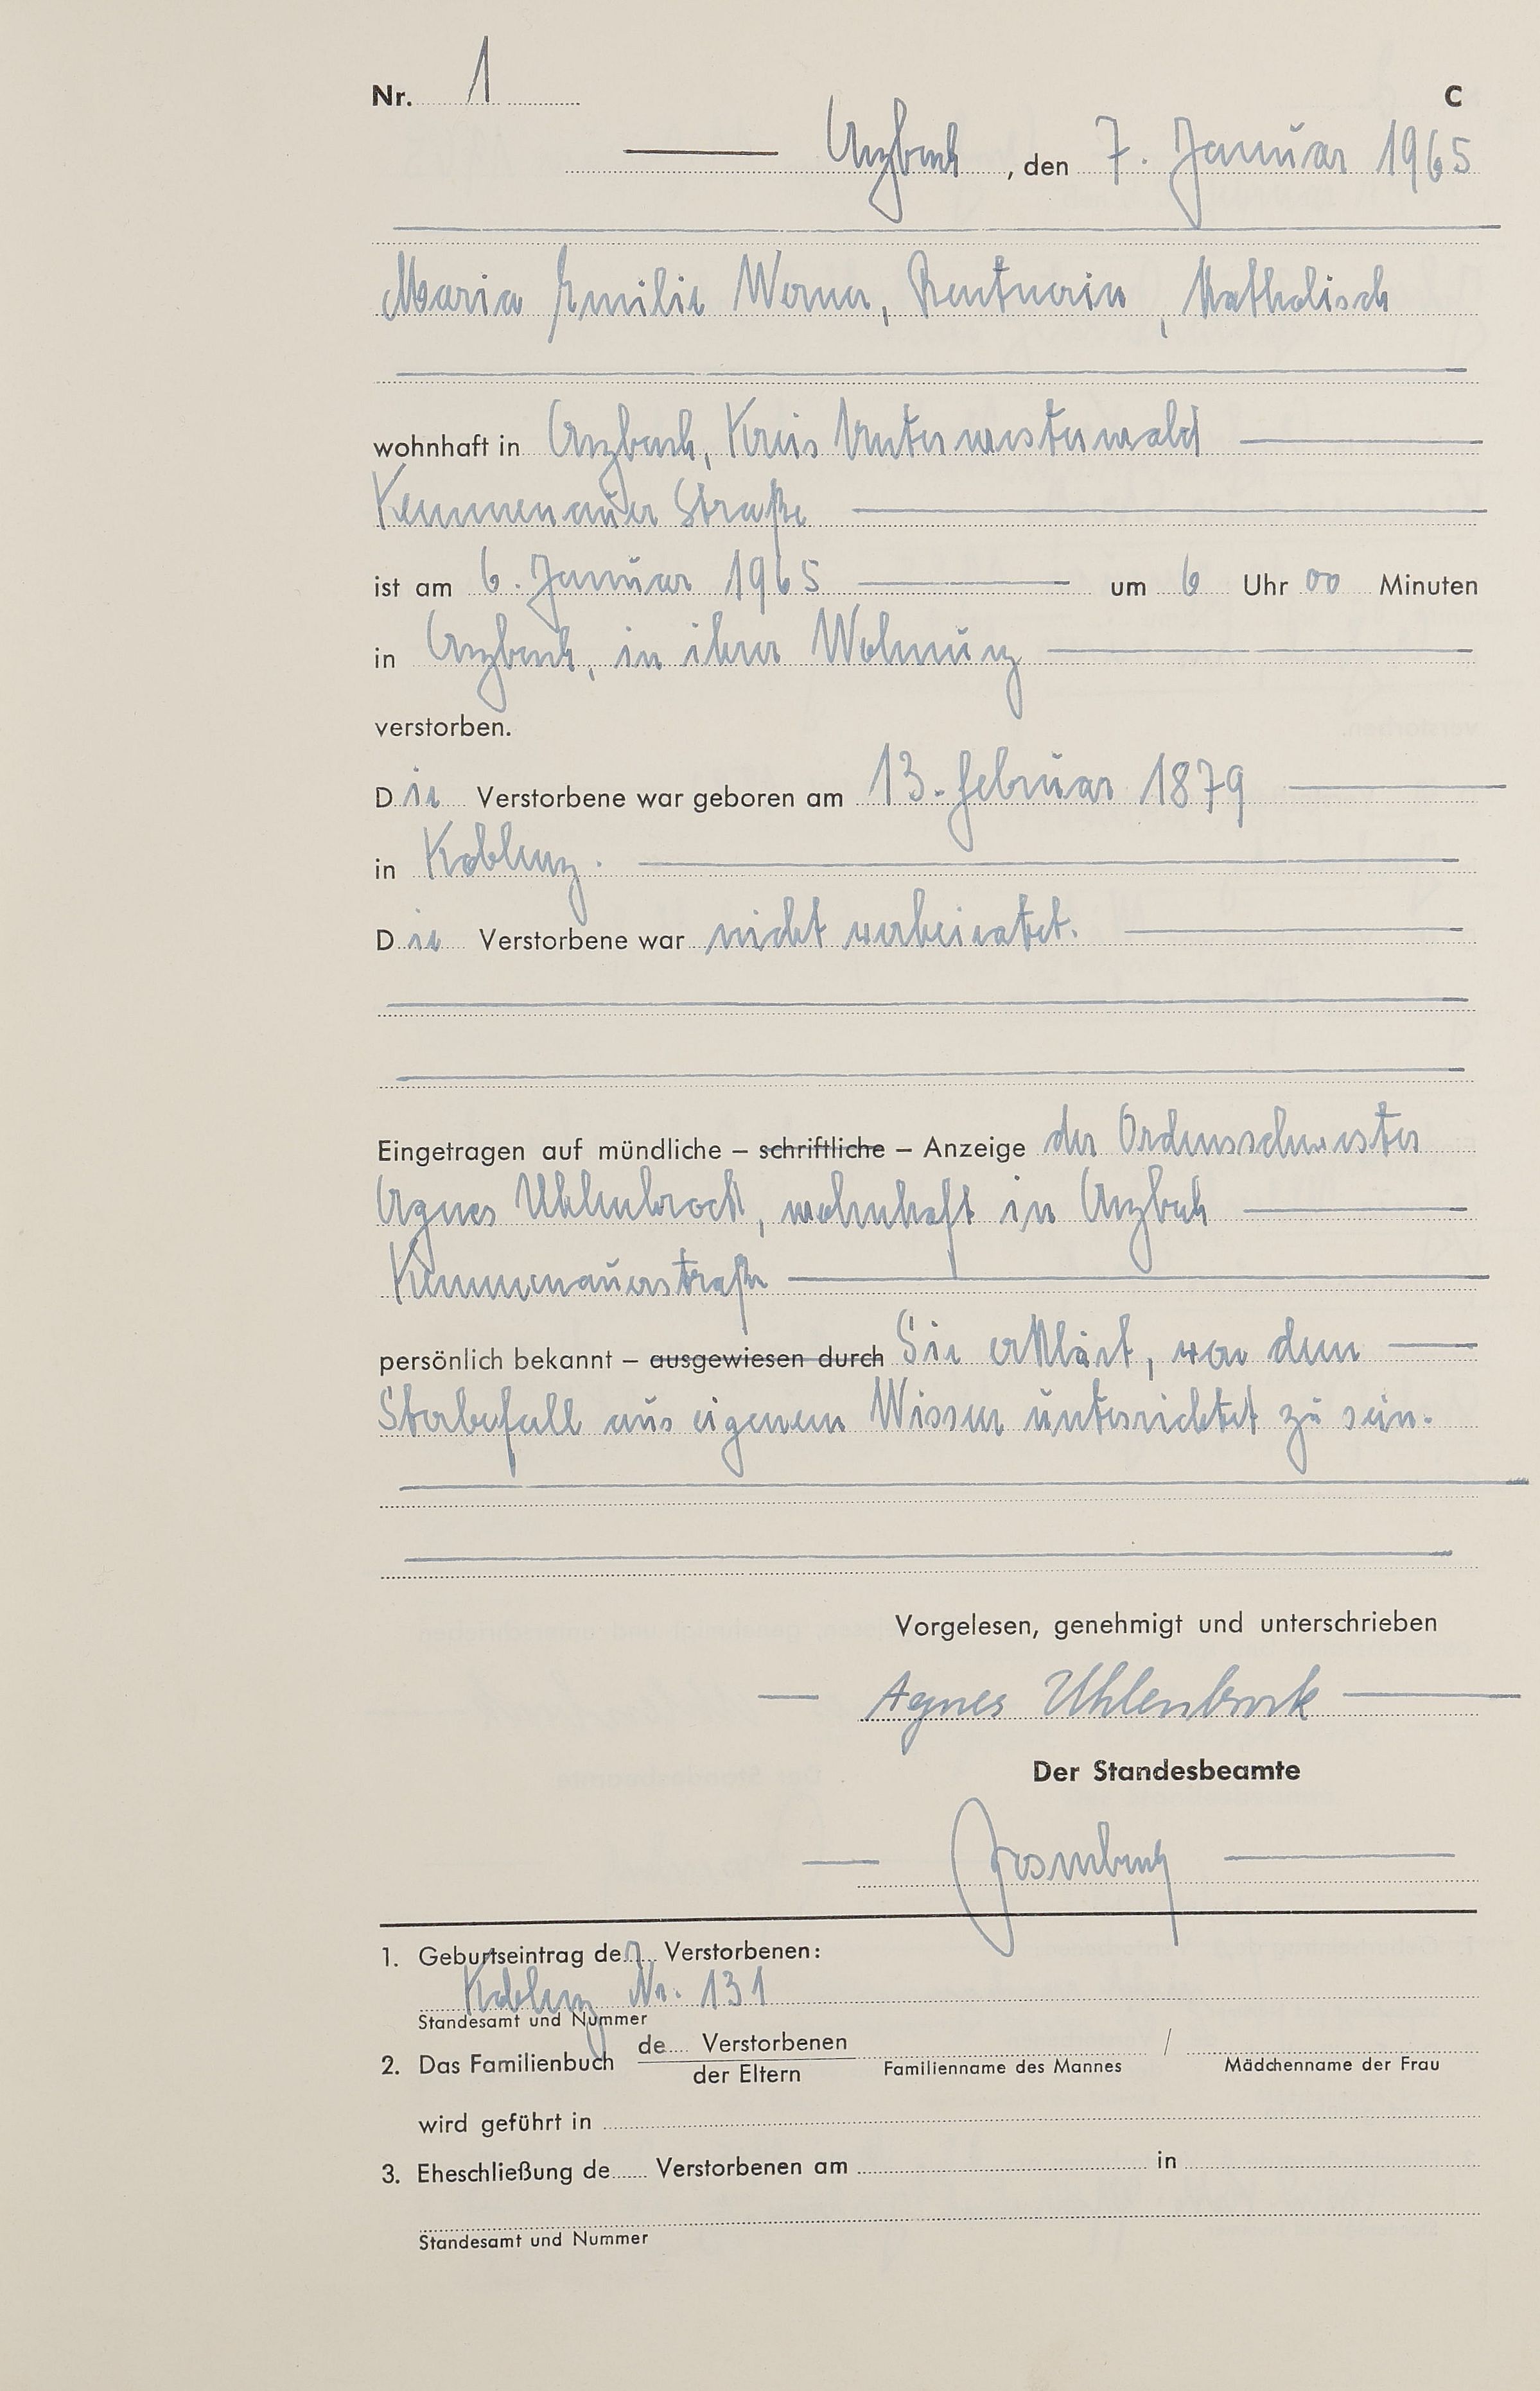 Nr. 1 C
Arzbach, den 7. Januar 1965
Maria Emilie Werner, Rentnerin, katholisch
wohnhaft in Arzbach, Kreis Unterwesterwald
Kemmenauer Straße
ist am 6. Januar 1965 um 6 Uhr 00 Minuten
in Arzbach, in ihrer Wohnung
verstorben.
Die Verstorbene war geboren am 13. Februar 1879
in Koblenz.
Die Verstorbene war nicht verheiratet.
Eingetragen auf mündliche – schriftliche – Anzeige der Ordensschwester
Agnes Uhlenbrock, wohnhaft in Arzbach
Kemmenauerstraße
persönlich bekannt – ausgewiesen durch Sie erklärt, von dem
Sterbefall aus eigenem Wissen unterrichtet zu sein.
Vorgelesen, genehmigt und unterschrieben
Agnes Uhlenbrock
Der Standesbeamte
1. Geburtseintrag der Verstorbenen:
Koblenz Nr. 131
Standesamt und Nummer
2. Das Familienbuch de Verstorbenen /
der Eltern Familienname des Mannes Mädchenname der Frau
wird geführt in
3. Eheschließung de Verstorbenen am in
Standesamt und Nummer